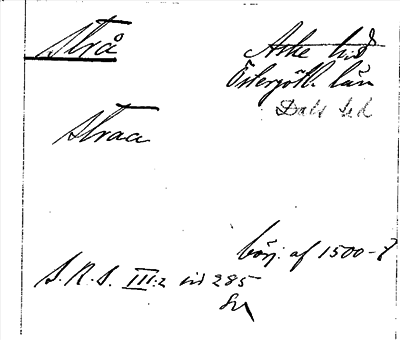 Strå
Aska hd
Östergötl. län
Dals hd
Straa
börj. af 1500-t
S.R.S. III:2 sid 285